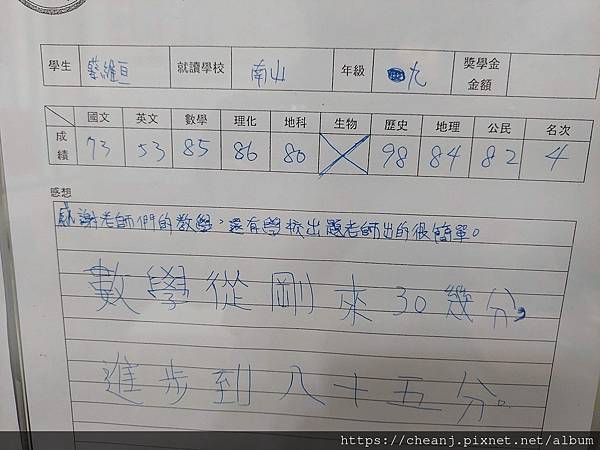 學生 蔡繼亘 就讀學校 南山 年級 九 獎學金金額
成績 國文 英文 數學 理化 地科 生物 歷史 地理 公民 名次
73 53 85 86 80 98 84 82 4
感想
感謝老師們的教學，還有學校出題老師出的很簡單。
數學從剛來30幾分，
進步到八十五分。
https://cheanj.pixnet.net/album